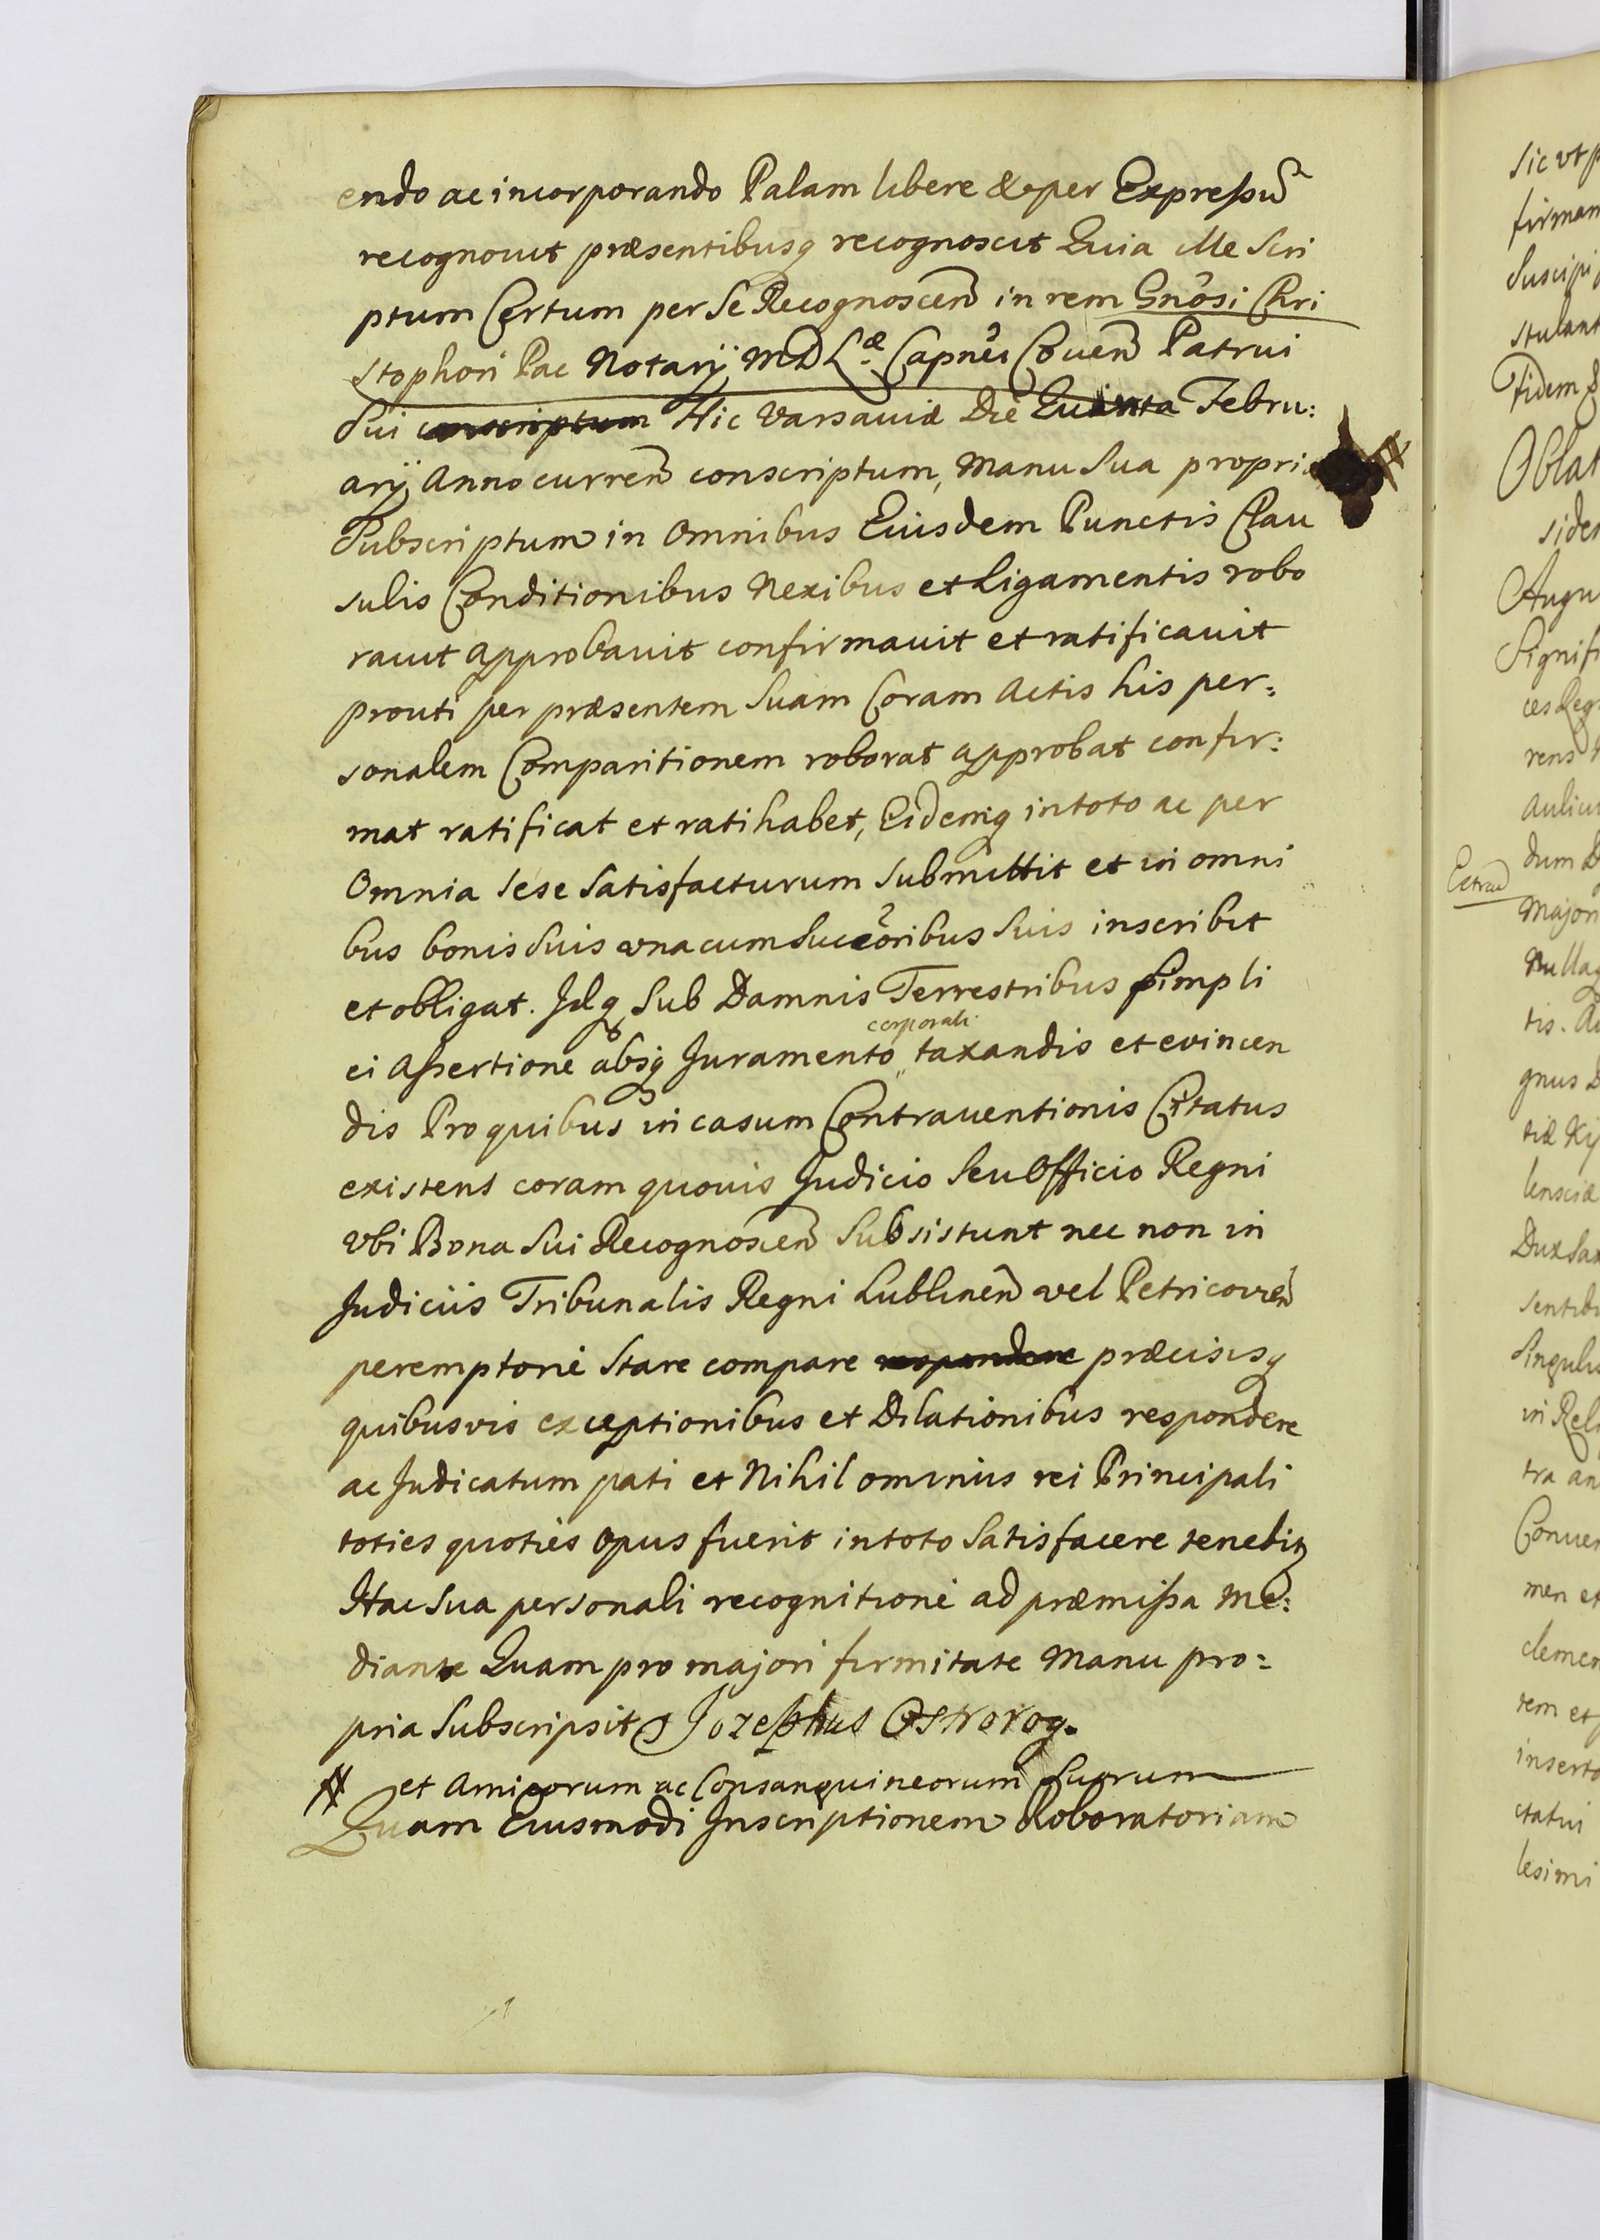 endo ac incorporando Palam libere & per Expressũ
recognovit præsentibusq recognoscit Quia Ille Scri
ptum Certum per Se Recognoscen in rem Gnosi Chri
stophori Pac Notarÿ MD Læ Capnei Couen Patrui
Sui conscriptum Hic Varsaviæ Die Quinta Febru:
arÿ Anno curren conscriptum, Manu Sua propria #
Subscriptum in Omnibus Eiusdem Punctis Clau
sulis Conditionibus Nexibus et Ligamentis robo
ravit approbavit confirmavit et ratificavit
prouti per præsentem Suam Coram Actis his per:
sonalem Comparitionem roborat approbat confir:
mat ratificat et ratihabet, Eidemq in toto ac per
Omnia sese Satisfacturum Submittit et in omni
bus bonis Suis vna cum Succoribus Suis inscribit
et obligat. Idq Sub Damnis Terrestribus simpli
corporali
ci Assertione absq Juramento taxandis et evincen
dis Pro quibus in casum Contrauentionis Citatus
existens coram quovis Judicio Seu Officio Regni
Vbi Bona Sui Recognoscen Subsistunt nec non in
Judiciis Tribunalis Regni Lublinen vel Petricovien
peremptorie Stare compare respondere præcisisq
quibusvis exceptionibus et Dilationibus respondere
ac Judicatum pati et Nihil ominus rei Principali
toties quoties Opus fuerit in toto Satisfacere tenebit
Hac Sua personali recognitione ad præmissa me:
diante Quam pro majori firmitate Manu pro:
pria Subscripsit Jozephus Ostrorog.
# et Amicorum ac Consanguineorum Suorum
Quam Eiusmodi Inscriptionem Roboratoriam
sic vt
firman
Suscipi
stulant
fidem
Oblat
siden
Augu
Signifi
ces Reg
rens
Aulicu
dum
Major
Nullaq
tis. Au
gnus
tiæ Ky
lensciæ
Dux Sa
sentib
Singuli
in Rel
tra an
Conuen
men et
clemen
tem et
inserto
ctatui
lesimi